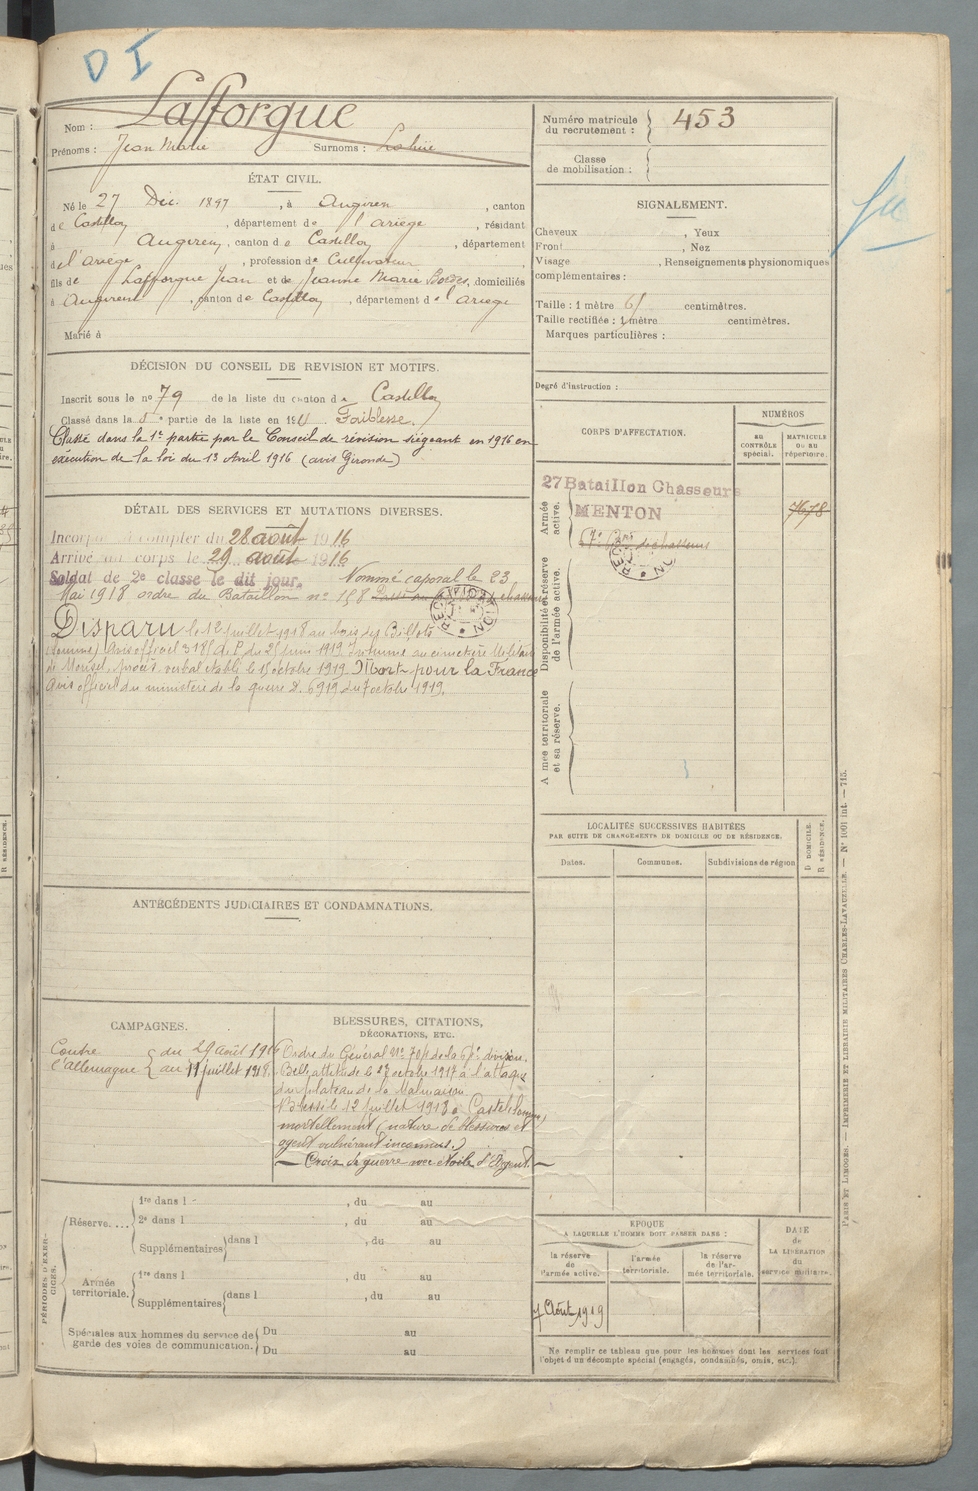 D I
Nom : Lafforgue
Prénoms : Jean Marie Surnoms :
Numéro matricule du recrutement : 453
Classe de mobilisation :
ÉTAT CIVIL.
Né le 27 Déc. 1897, à Augirein, canton
de Castillon, département de l'Ariège, résidant
à Augirein, canton de Castillon, département
de l'Ariège, profession de Cultivateur
fils de Lafforgue Jean et de Jeanne Marie Bordes, domiciliés
à Augirein, canton de Castillon, département de l'Ariège
Marié à
SIGNALEMENT.
Cheveux , Yeux
Front , Nez
Visage , Renseignements physionomiques
complémentaires :
Taille : 1 mètre 61 centimètres.
Taille rectifiée : 1 mètre centimètres.
Marques particulières :
Degré d'instruction :
DÉCISION DU CONSEIL DE REVISION ET MOTIFS.
Inscrit sous le no 79 de la liste du canton de Castillon
Classé dans la 5e partie de la liste en 191 Faiblesse.
Classé dans la 1e partie par le Conseil de révision siégeant en 1916 en
exécution de la loi du 13 Avril 1916 (avis Gironde)
CORPS D'AFFECTATION.
NUMÉROS
AU CONTRÔLE spécial.
MATRICULE OU AU répertoire.
Armée active.
27 Bataillon Chasseurs
MENTON
7678
de chasseurs
Disponibilité et réserve de l'armée active.
Armée territoriale et sa réserve.
DÉTAIL DES SERVICES ET MUTATIONS DIVERSES.
Incorporé à compter du 28 août 1916
Arrivé au corps le 29 août 1916
Soldat de 2e classe le dit jour. Nommé caporal le 23
Mai 1918 ordre du Bataillon no 158
RECEPTION
Disparu le 12 juillet 1918 au bois des Billots
(Somme) Avis officiel du 25 juin 1919. Inhumé au cimetière Militaire
de procès verbal établi le 15 octobre 1919. Mort pour la France
Avis officiel du ministère de la guerre D. 6919 du 7 octobre 1919.
LOCALITÉS SUCCESSIVES HABITÉES
PAR SUITE DE CHANGEMENTS DE DOMICILE OU DE RÉSIDENCE.
Dates. Communes. Subdivisions de région
D DOMICILE. R RÉSIDENCE.
ANTÉCÉDENTS JUDICIAIRES ET CONDAMNATIONS.
CAMPAGNES.
Contre l'Allemagne
du 29 Août 1916
au 11 juillet 1918.
BLESSURES, CITATIONS,
DÉCORATIONS, ETC.
Ordre du Général No de la division.
Belle attitude le 27 octobre 1917 à l'attaque
du plateau de la Malmaison
Blessé le 12 juillet 1918 à Castel (Somme)
mortellement (nature de blessures et
agent vulnérant inconnus.)
— Croix de guerre avec étoile d'Argent. —
PÉRIODES D'EXERCICES.
Réserve....
1re dans l , du au
2e dans l , du au
Supplémentaires dans l , du au
Armée territoriale.
1re dans l , du au
Supplémentaires dans l , du au
Spéciales aux hommes du service de garde des voies de communication.
Du au
Du au
ÉPOQUE
A LAQUELLE L'HOMME DOIT PASSER DANS :
la réserve de l'armée active.
l'armée territoriale.
la réserve de l'armée territoriale.
DATE de LA LIBÉRATION du service militaire.
Août 1919
Ne remplir ce tableau que pour les hommes dont les services font
l'objet d'un décompte spécial (engagés, condamnés, omis, etc.).
PARIS ET LIMOGES. — IMPRIMERIE ET LIBRAIRIE MILITAIRES CHARLES-LAVAUZELLE. — No 1001 int. — 715.